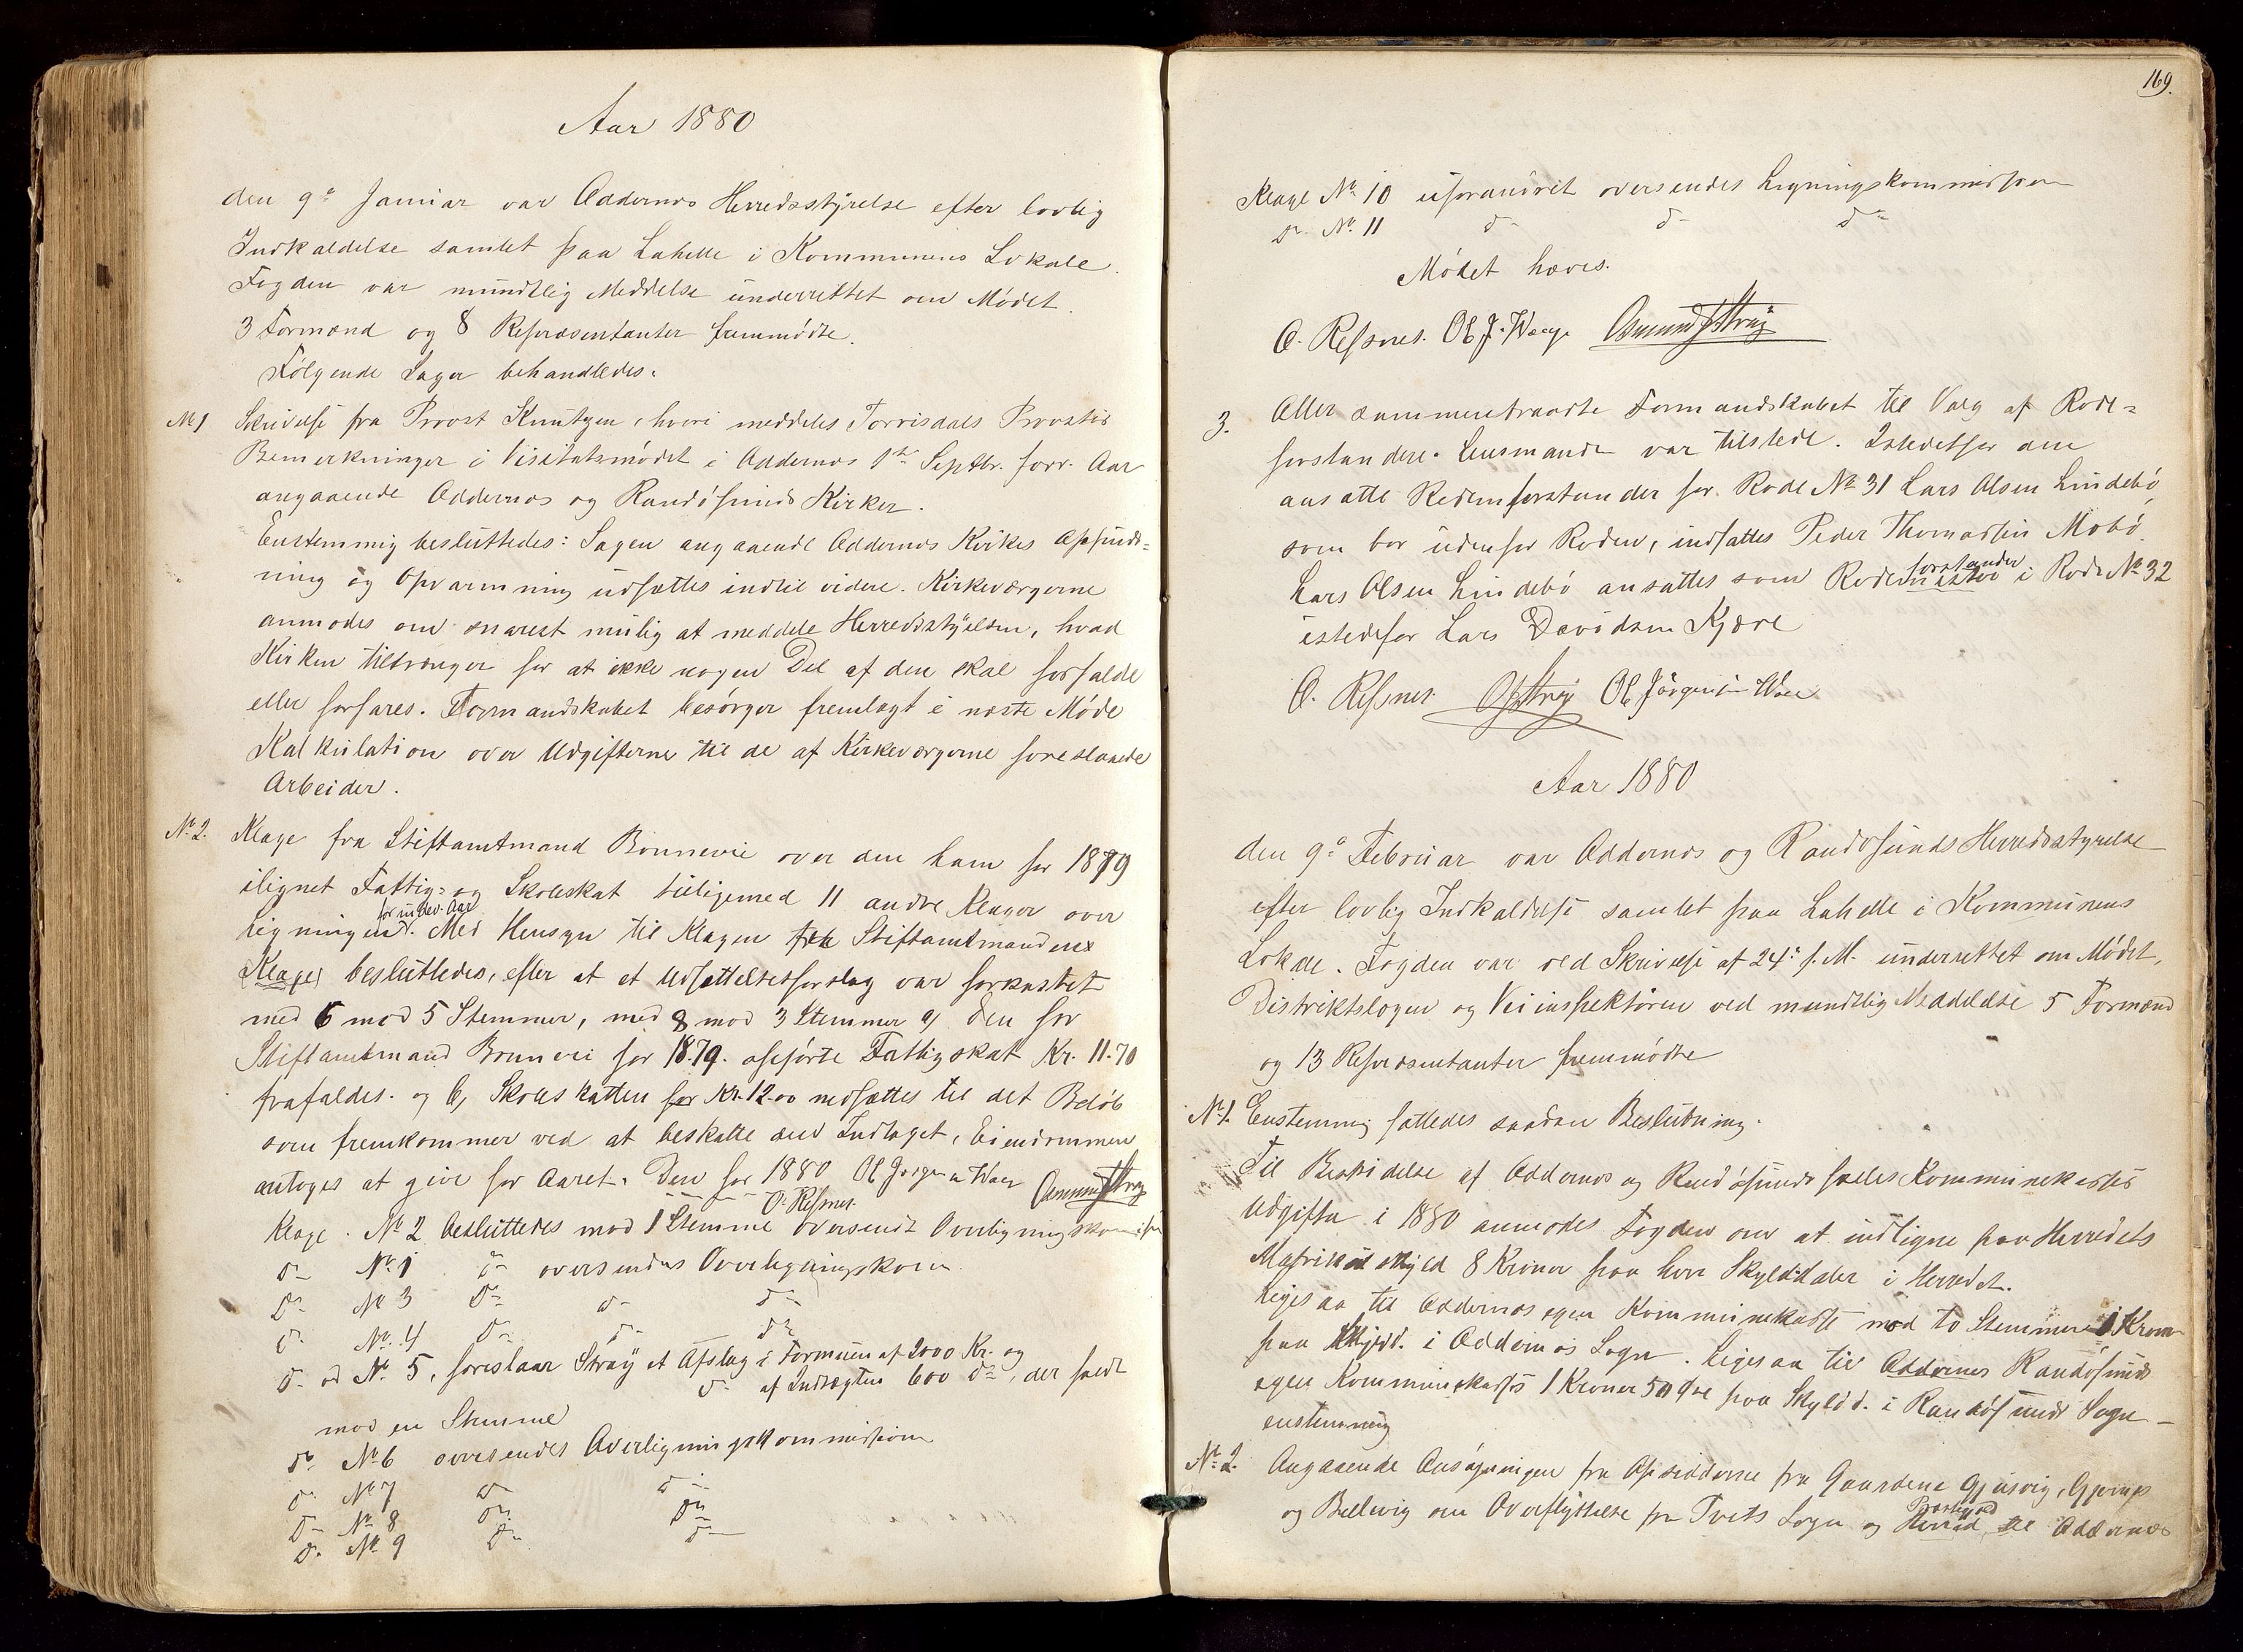 Aar 1880
den 9de Januar var Oddernæs Herredsstyrelse efter lovlig
Indkaldelse samlet paa Lahelle i Kommunens Lokale.
Fogden var mundtlig Meddelse underrettet om Mødet.
3 Formænd og 8 Repræsentanter fremmødte.
Følgende Sager behandledes:
No 1 Skrivelse fra Provst Knutzen, hvori meddeles Torrisdals Provsties
Bemerkninger i Visitatsmødet i Oddernæs 1ste Septbr. forr. Aar
angaaende Oddernæs og Randøsunds Kirker.
Enstemmig besluttedes: Sagen angaaende Oddernæs Kirkes Oppuds=
ning og Opvarmning udsættes indtil videre. Kirkeværgerne
anmodes om snarest mulig at meddele Herredsstyrelsen, hvad
Kirken tiltrænger for at ikke nogen Del af den skal forfalde
eller forfares. Formandskabet besørger fremlagt i næste Møde
Kalkulation over Udgifterne til de af Kirkeværgerne foreslaaede
Arbeider.
No 2. Klage fra Stiftamtmand Bonnevie over den ham for 1879
ilignet Fattig= og Skoleskat tilligemed 11 andre Klager over
Ligningen for indev. Aar. Med Hensyn til Klagen fra Stiftamtmandens
(Klage) besluttedes, efter at et Udsættelsesforslag var forkastet
med 6 mod 5 Stemmer, med 8 mod 3 Stemmer a) den for
Stiftamtmand Bonnevie for 1879 opførte Fattigskat Kr. 11.70
frafaldes. og b) Skoleskatten for Kr. 12.00 nedsættes til det Beløb
som fremkommer ved at beskatte den Indtægt, Eiendommen
antages at give for Aaret. Den for 1880 Ol Jørgensen Waa Osmund Stray
O. Refsnes.
Klage No 2 besluttedes mod 1 Stemme oversendt Overligningskommission
do No 1 do oversendes Overligningskom
do No 3 do do do
do No 4 do do do
do ad No 5, foreslaar Straÿ et Afslag i Formuen af 2000 Kr. og
do af Indtægten 600 do, der faldt
mod en Stemme
do No 6 oversendes Overligningskommission
do No 7 do do
do No 8 do do
do No 9 do do
169.
Klage No 10 uforandret oversendes Ligningskommission
do No 11 do do do
Mødet hæves.
O. Refsnes. Ol J. Waage Osmund Stray
3. Aller sammentraadte Formandskabet til Valg af Rode=
forstandere. Lensmanden var tilstede. Istedetfor den
ansatte Rodeforstander for Rode No 31 Lars Olsen Lindebø,
som bor udenfor Roden, indsattes Peder Thomassen Mobø.
Lars Olsen Lindebø ansattes som Rodemester forstander i Rode No 32
istedefor Lars Davidsen Kjære
O. Refsnes. OStray Ol Jørgensen Waa
Aar 1880
den 9de Februar var Oddernæs og Randøsunds Herredsstyrelse
efter lovlig Indkaldelse samlet paa Lahelle i Kommunens
Lokale. Fogden var ved Skrivelse af 24de f. M. underrettet om Mødet,
Distriktslægen og Veiinspektøren ved mundtlig Meddelelse 5 Formænd
og 13 Repræsentanter fremmødte
No 1. Enstemmig fattedes saadan Beslutning.
Til Bestridelse af Oddernæs og Randøsunds fælles Kommunekasses
Udgifter i 1880 anmodes Fogden om at indligne paa Herredets
Matrikulskyld 8 Kroner paa hver Skylddaler i Herredet.
Ligesaa til Oddernæs egen Kommunekasse mod to Stemmer 1 Krone
paa Skyldd. i Oddernæs Sogn. Ligesaa til Oddernes Randøsunds
egen Kommunekasse 1 Kroner 50 Øre paa Skyldd. i Randøsunds Sogn -
enstemmig
No 2. Angaaende Ansøgningen fra Opsidderne fra Gaardene Gjusvig, Gjerup
og Bellevig om Overflyttelse fra Tveits Sogn og Herred Præstegjeld til Oddernæs